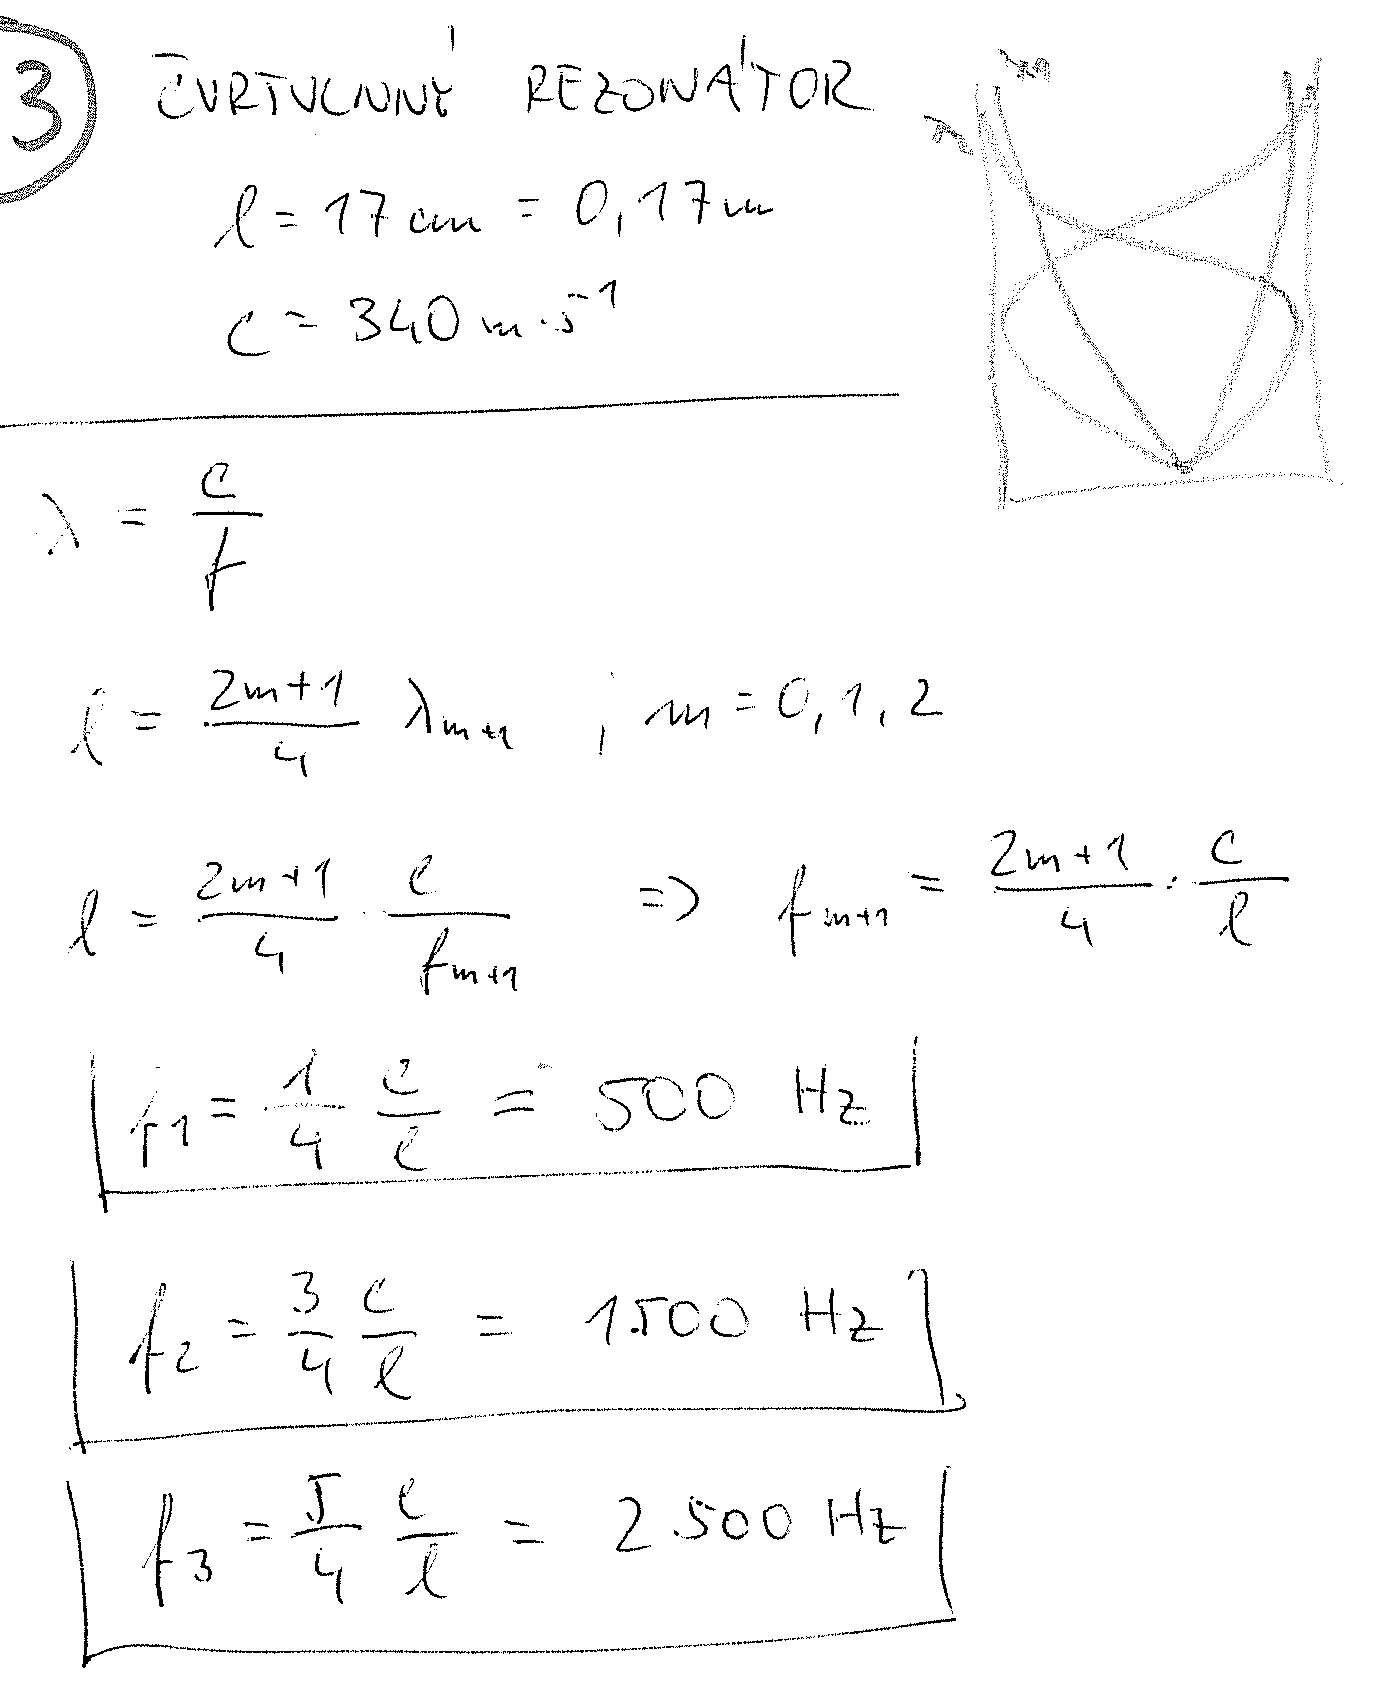 3 ČVRTVLNNÝ REZONÁTOR
l = 17 cm = 0,17 m
c = 340 m·s⁻¹
λ = c/f
l = (2m+1)/4 λm+1 ; m = 0, 1, 2
l = (2m+1)/4 · c/fm+1 => fm+1 = (2m+1)/4 · c/l
f1 = 1/4 c/l = 500 Hz
f2 = 3/4 c/l = 1500 Hz
f3 = 5/4 c/l = 2500 Hz